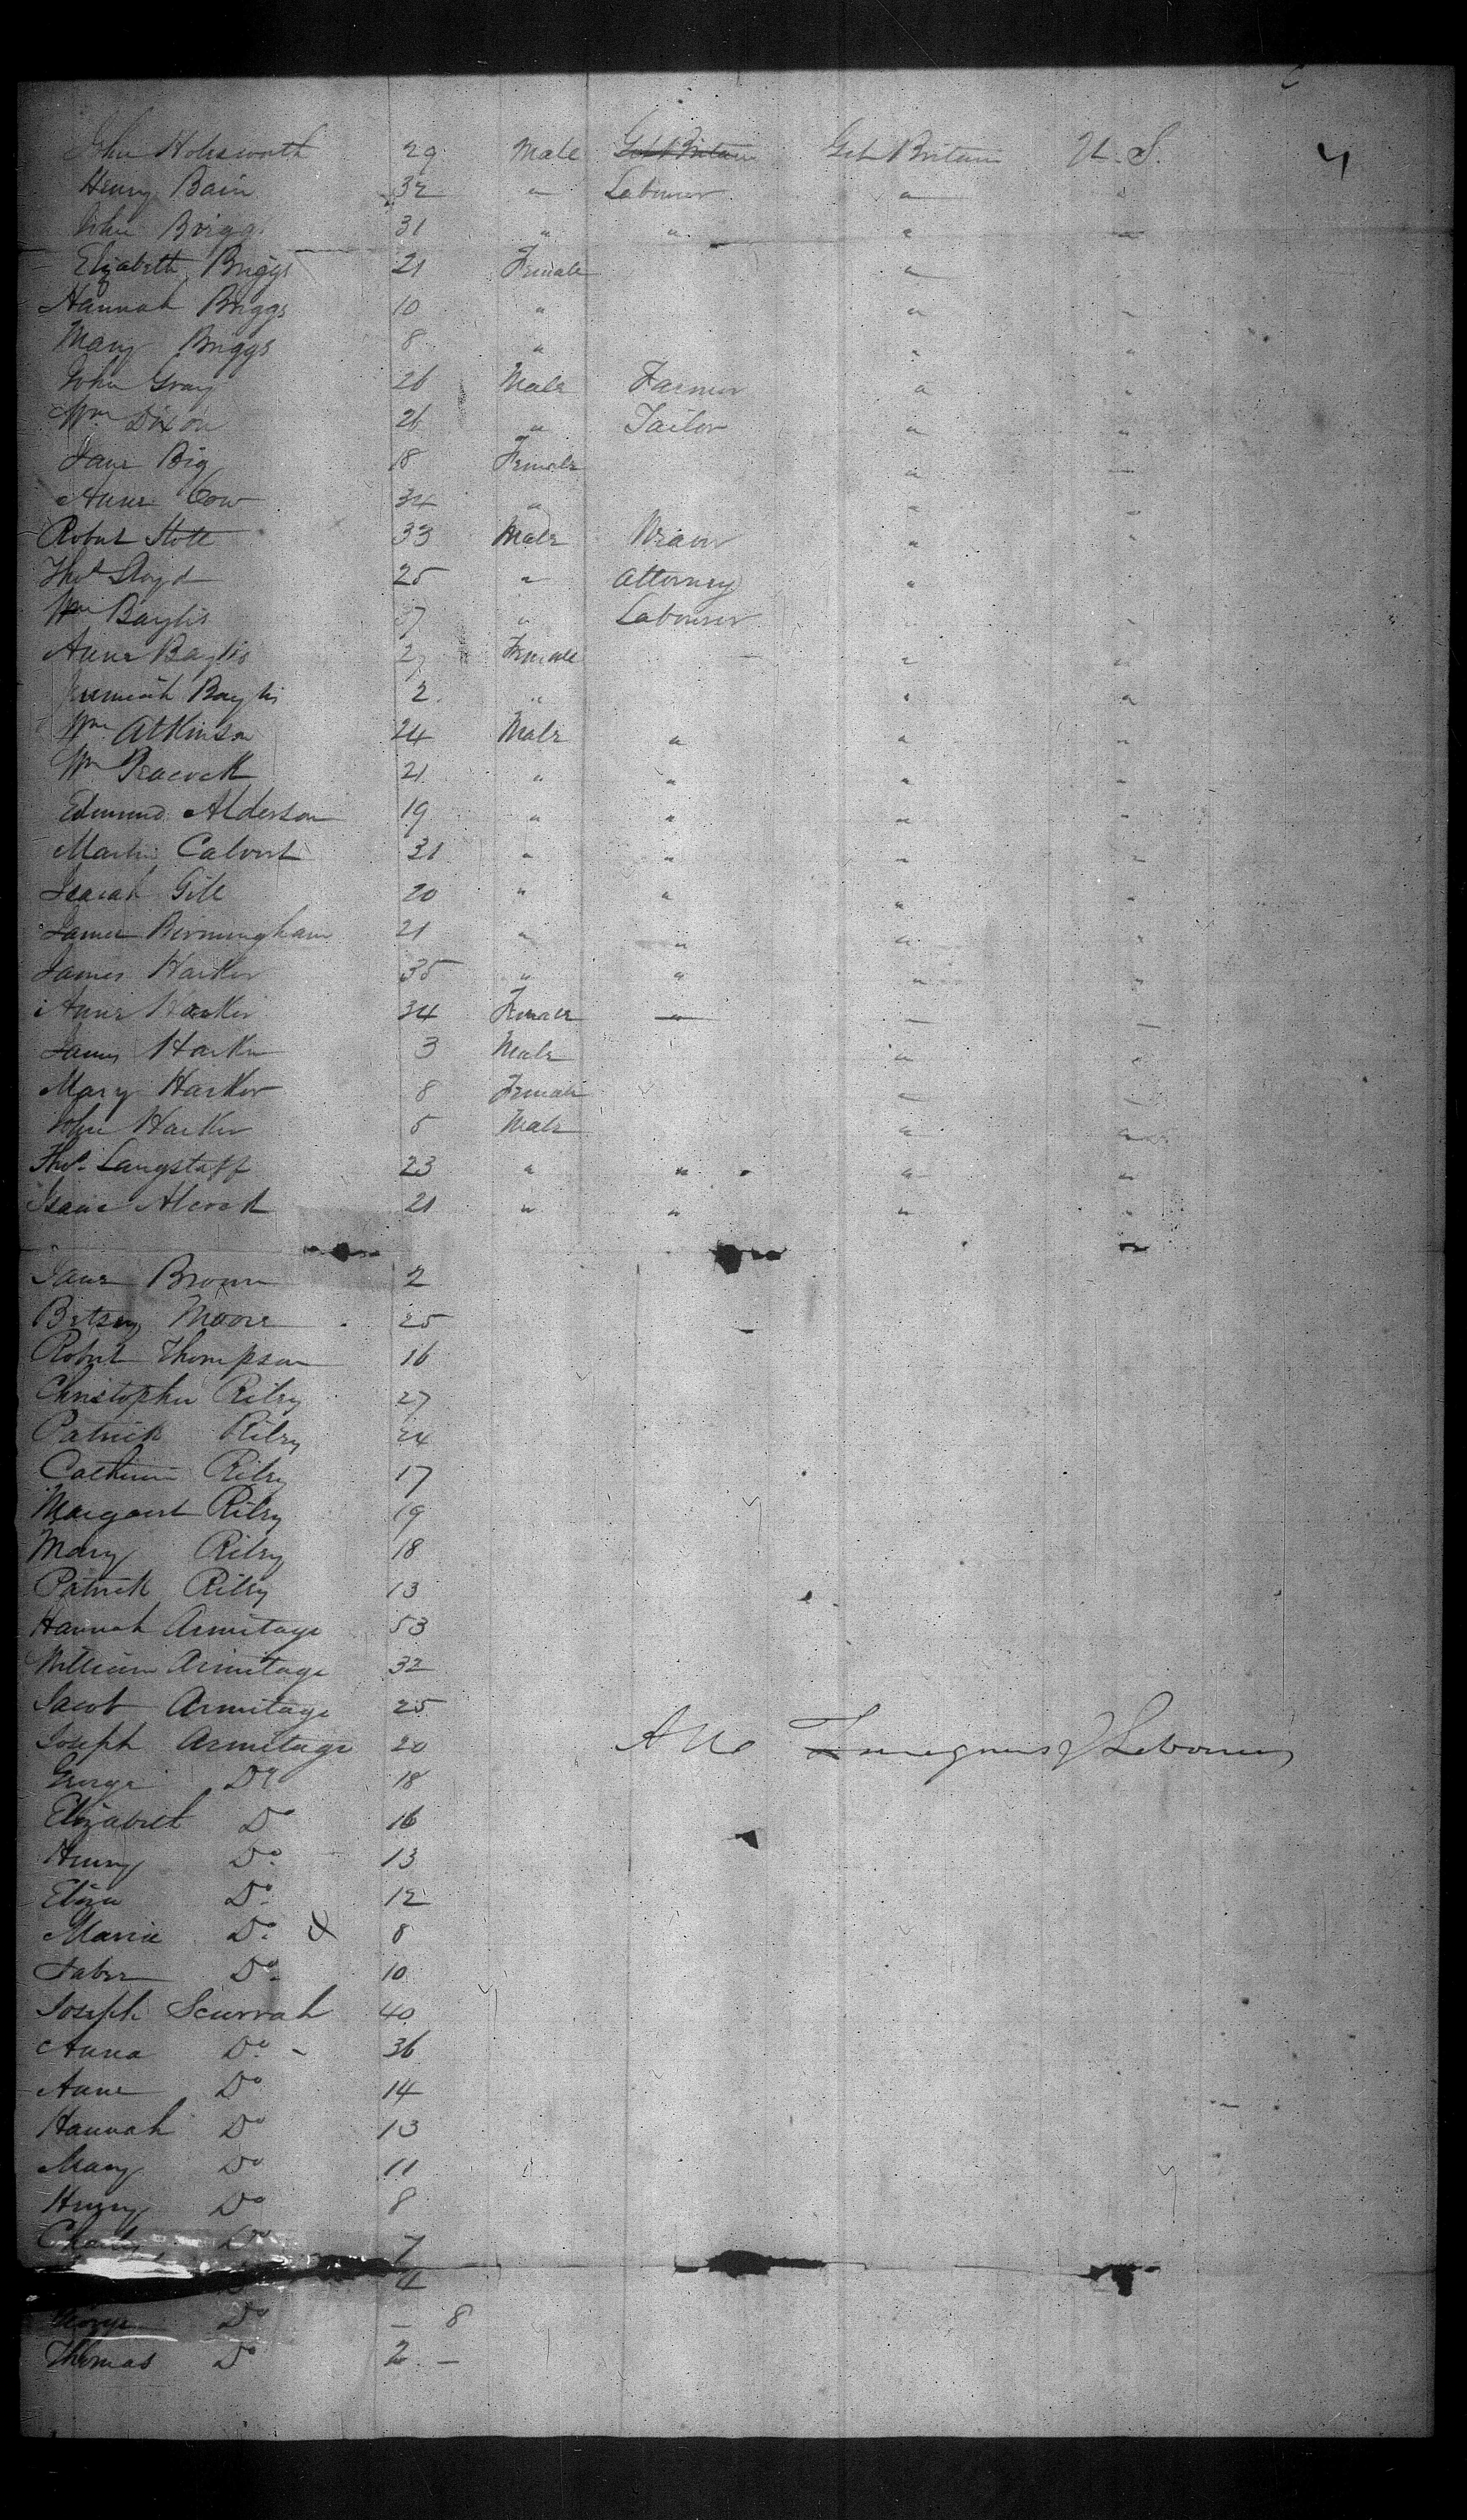 John Holdsworth 29 Male Gt Britain Gt Britain U. S. 4
Henry Bain 32 " Labourer " "
John Briggs 31 " " " "
Elizabeth Briggs 21 Female " "
Hannah Briggs 10 " " "
Mary Briggs 8 " " "
John Gray 26 Male Farmer " "
Wm Dixon 26 " Tailor " "
Jane Big 18 Female " "
Anne Cow 34 " " "
Robert Stott 33 Male Weaver " "
Thos Lloyd 25 " Attorney "
Wm Baylis 37 " Labourer " "
Anne Baylis 27 Female " "
Baylis 2 " " "
Wm Atkinson 24 Male " " "
Wm Peacock 21 " " " "
Edmund Alderson 19 " " " "
Martin Calvert 31 " " " "
Isaiah Gill 20 " " " "
James Birmingham 21 " " " "
James Harker 35 " " " "
Anne Harker 34 Female " " "
James Harker 3 Male " "
Mary Harker 8 Female " "
John Harker 5 Male " "
Thos Langstaff 23 " " " "
Isaac Alcock 21 " " " "
Jane Brown 2
Betsey Moore 25
Robert Thompson 16
Christopher Riley 27
Patrick Riley 24
Catherine Riley 17
Margaret Riley 19
Mary Riley 18
Patrick Riley 13
Hannah Armitage 53
William Armitage 32
Jacob Armitage 25
Joseph Armitage 20 All Foreigners & Labourers
George Do 18
Elizabeth Do 16
Henry Do 13
Eliza Do 12
Maria Do 8
Do 10
Joseph Scurrah 40
Anna Do 36
Anne Do 14
Hannah Do 13
Mary Do 11
Henry Do 8
Charles Do 7
Do 4
George Do - 8
Thomas Do 2 -